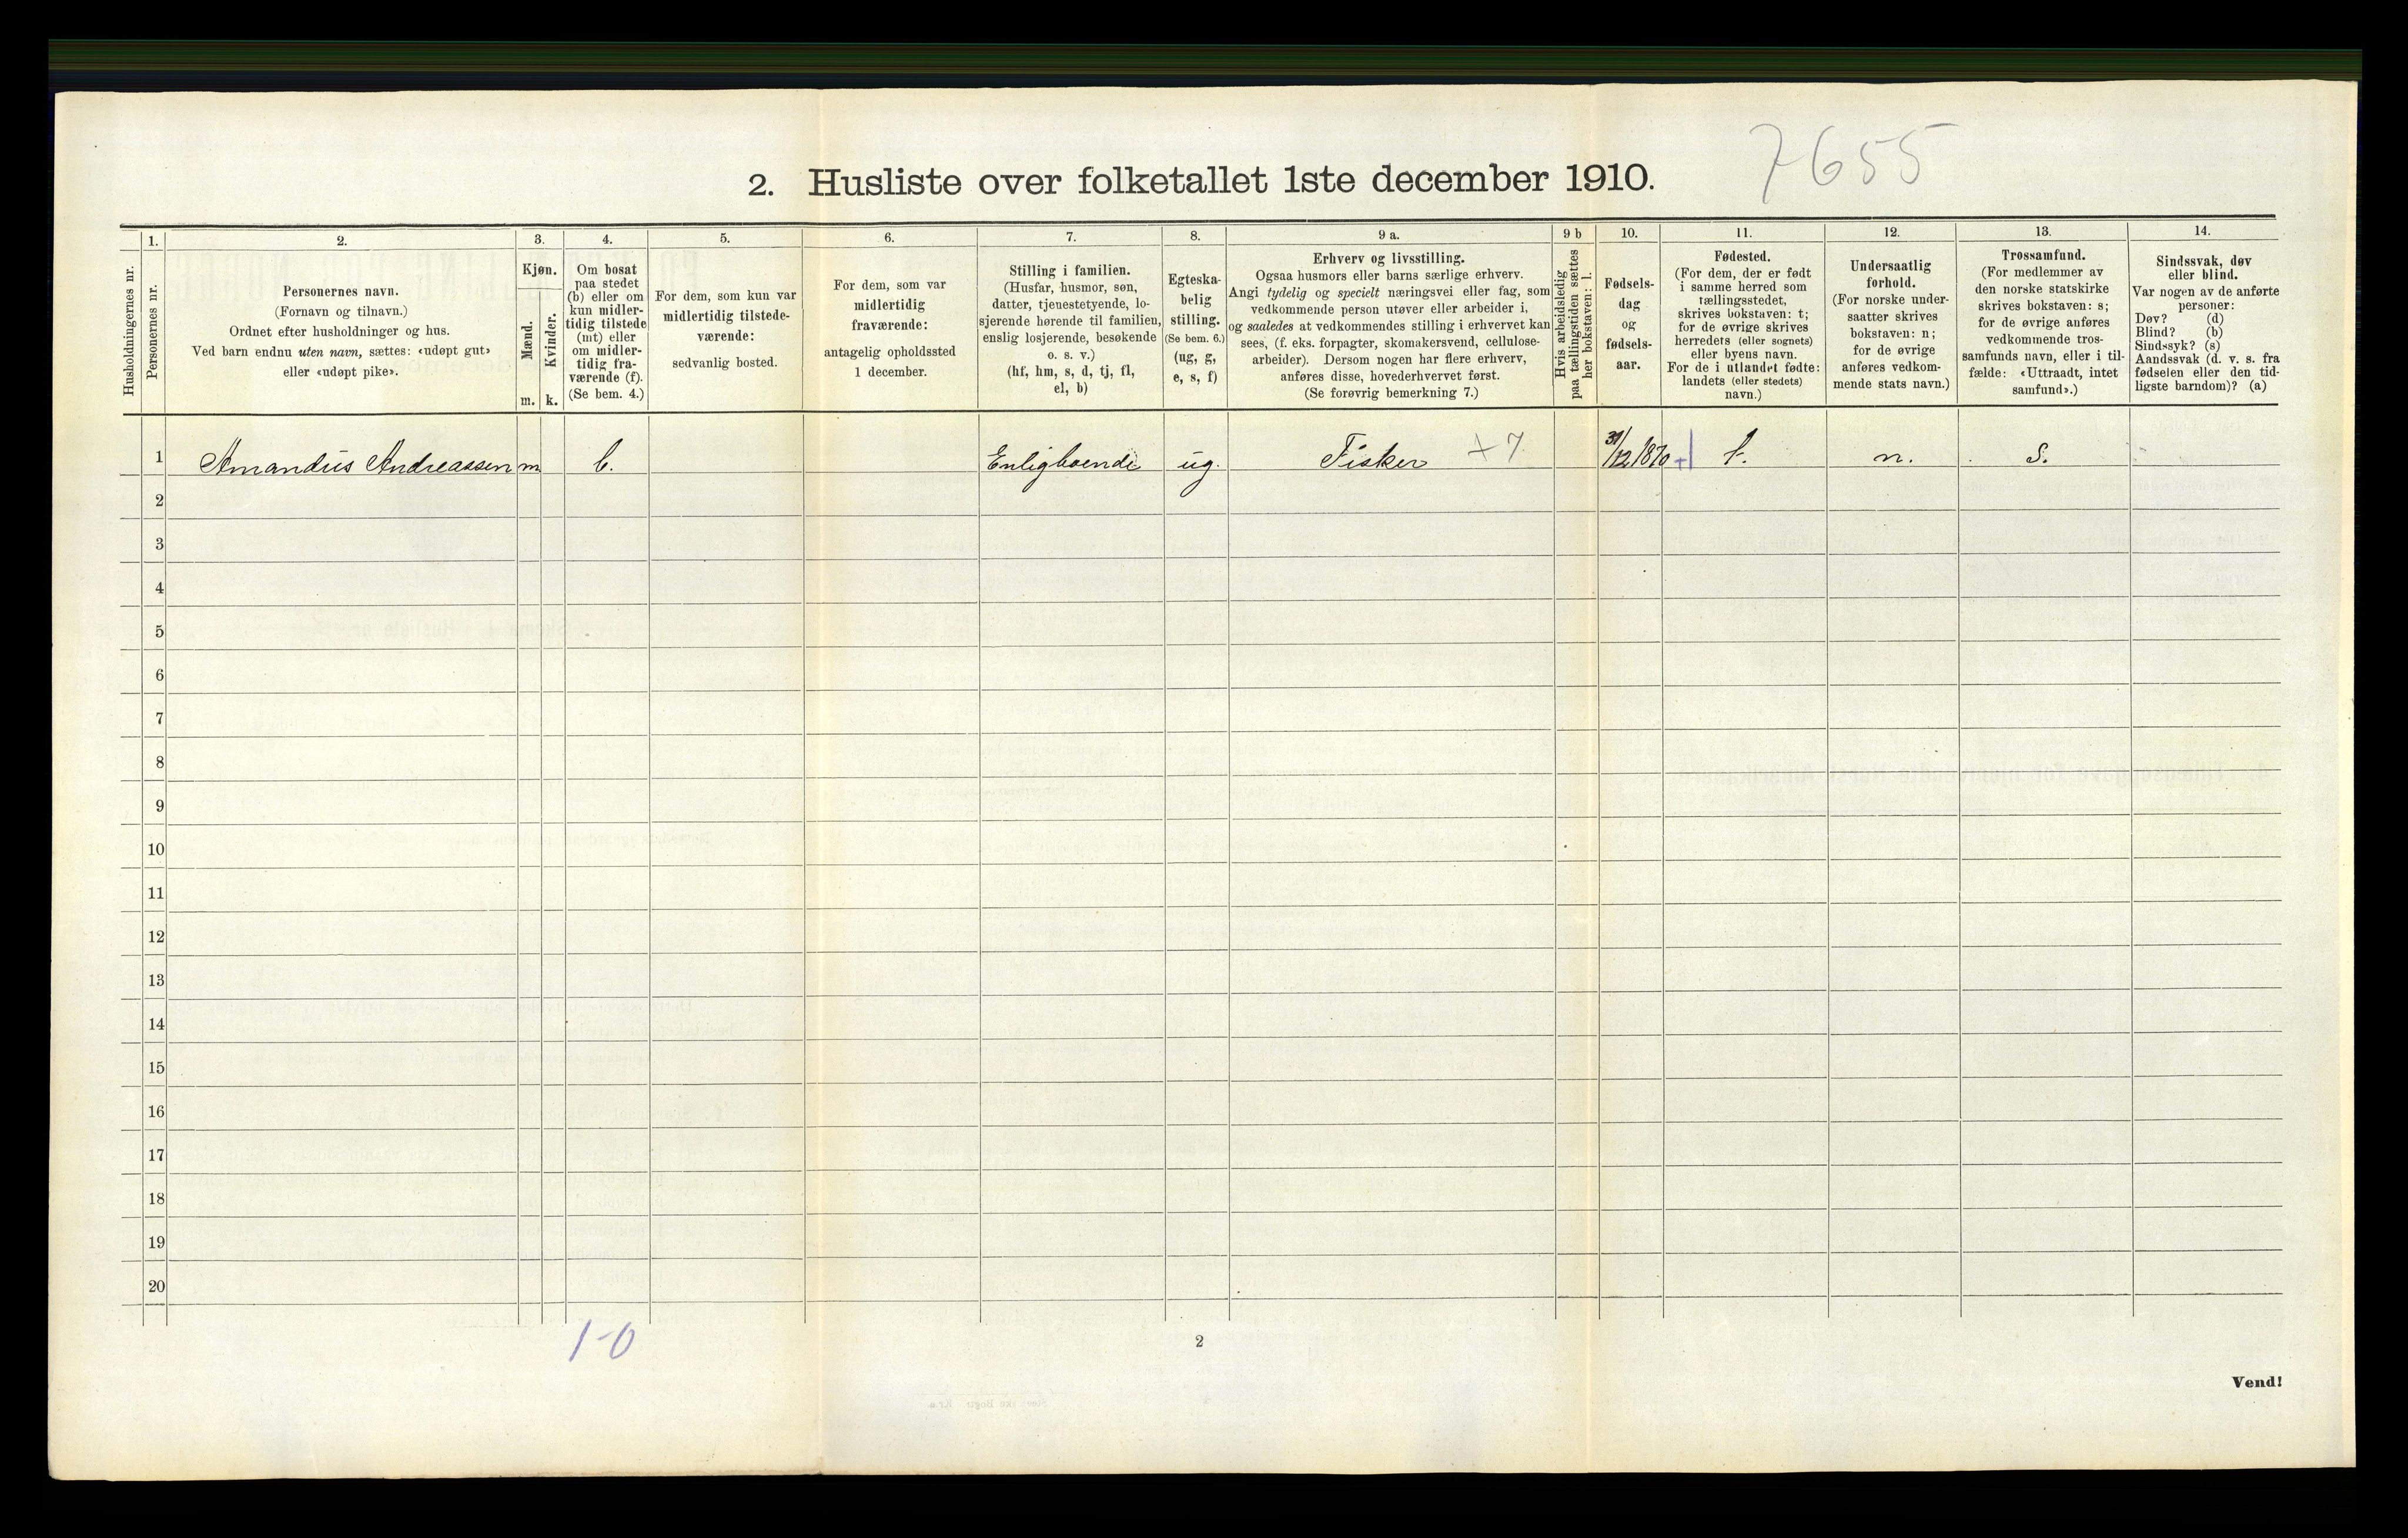 7655
2. Husliste over folketallet 1ste december 1910.
Husholdningernes nr.
1.
Personernes nr.
2.
Personernes navn.
(Fornavn og tilnavn.)
Ordnet efter husholdninger og hus.
Ved barn endnu uten navn, sættes: «udøpt gut»
eller «udøpt pike».
3.
Kjøn.
Mænd.
Kvinder.
m. k.
4.
Om bosat
paa stedet
(b) eller om
kun midler-
tidig tilstede
(mt) eller
om midler-
tidig fra-
værende (f).
(Se bem. 4.)
5.
For dem, som kun var
midlertidig tilstede-
værende:
sedvanlig bosted.
6.
For dem, som var
midlertidig
fraværende:
antagelig opholdssted
1 december.
7.
Stilling i familien.
(Husfar, husmor, søn,
datter, tjenestetyende, lo-
sjerende hørende til familien,
enslig losjerende, besøkende
o. s. v.)
(hf, hm, s, d, tj, fl,
el, b)
8.
Egteska-
belig
stilling.
(Se bem. 6.)
(ug, g,
e, s, f)
9 a.
Erhverv og livsstilling.
Ogsaa husmors eller barns særlige erhverv.
Angi tydelig og specielt næringsvei eller fag, som
vedkommende person utøver eller arbeider i,
og saaledes at vedkommendes stilling i erhvervet kan
sees, (f. eks. forpagter, skomakersvend, cellulose-
arbeider). Dersom nogen har flere erhverv,
anføres disse, hovederhvervet først.
(Se forøvrig bemerkning 7.)
9 b
Hvis arbeidsledig
paa tællingstiden sættes
her bokstaven: l.
10.
Fødsels-
dag
og
fødsels-
aar.
11.
Fødested.
(For dem, der er født
i samme herred som
tællingsstedet,
skrives bokstaven: t;
for de øvrige skrives
herredets (eller sognets)
eller byens navn.
For de i utlandet fødte:
landets (eller stedets)
navn.)
12.
Undersaatlig
forhold.
(For norske under-
saatter skrives
bokstaven: n;
for de øvrige
anføres vedkom-
mende stats navn.)
13.
Trossamfund.
(For medlemmer av
den norske statskirke
skrives bokstaven: s;
for de øvrige anføres
vedkommende tros-
samfunds navn, eller i til-
fælde: «Uttraadt, intet
samfund».)
14.
Sindssvak, døv
eller blind.
Var nogen av de anførte
personer:
Døv? (d)
Blind? (b)
Sindssyk? (s)
Aandssvak (d. v. s. fra
fødselen eller den tid-
ligste barndom)? (a)
1 Amandus Andreassen m b. Enligboende ug. Fisker + 7 31/12 1870 + t. n. S.
2
3
4
5
6
7
8
9
10
11
12
13
14
15
16
17
18
19
20
1-0
2
Vend!